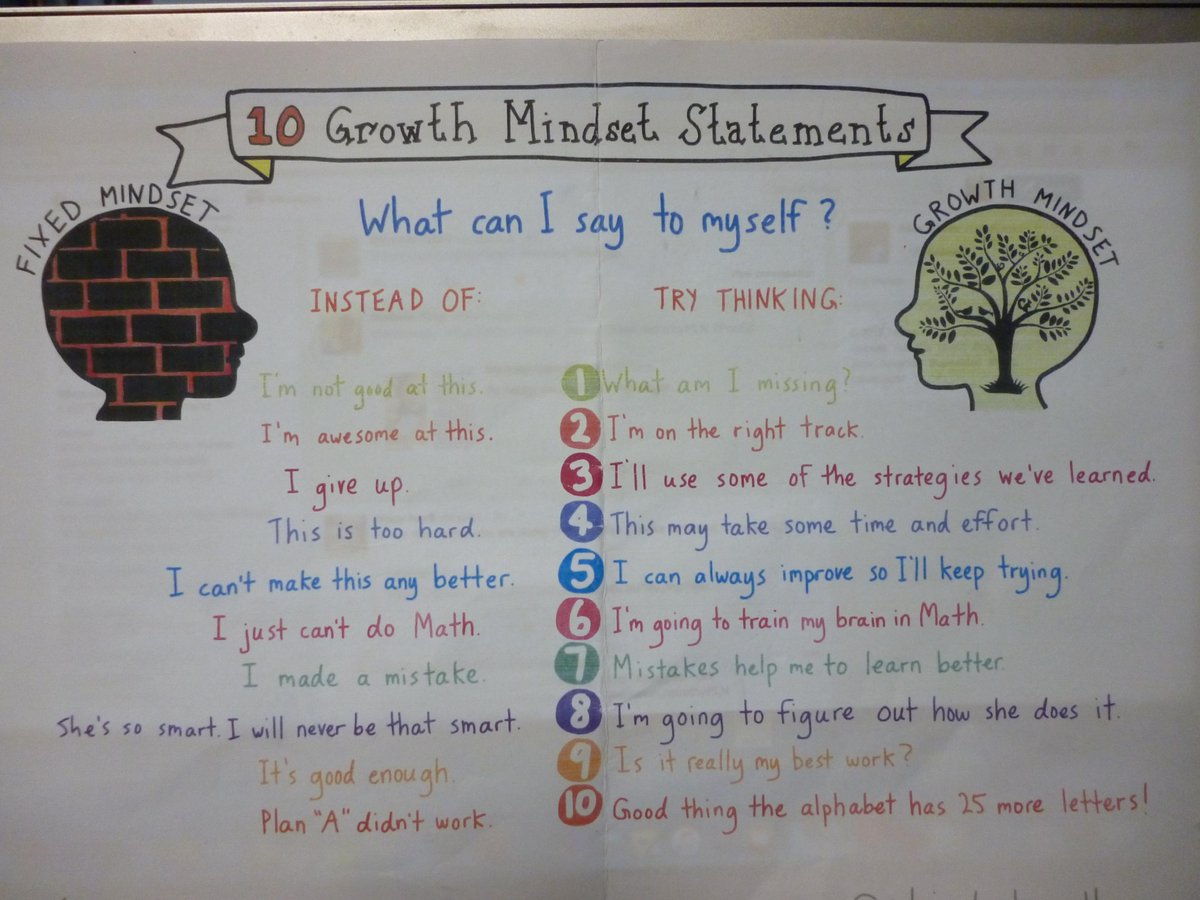 10 Growth Mindset Statements
FIXED MINDSET
GROWTH MINDSET
What can I say to myself?
INSTEAD OF:
TRY THINKING:
I'm not good at this. 1 What am I missing?
I'm awesome at this. 2 I'm on the right track.
I give up. 3 I'll use some of the strategies we've learned.
This is too hard. 4 This may take some time and effort.
I can't make this any better. 5 I can always improve so I'll keep trying.
I just can't do Math. 6 I'm going to train my brain in Math.
I made a mistake. 7 Mistakes help me to learn better.
She's so smart. I will never be that smart. 8 I'm going to figure out how she does it.
It's good enough. 9 Is it really my best work?
Plan "A" didn't work. 10 Good thing the alphabet has 25 more letters!